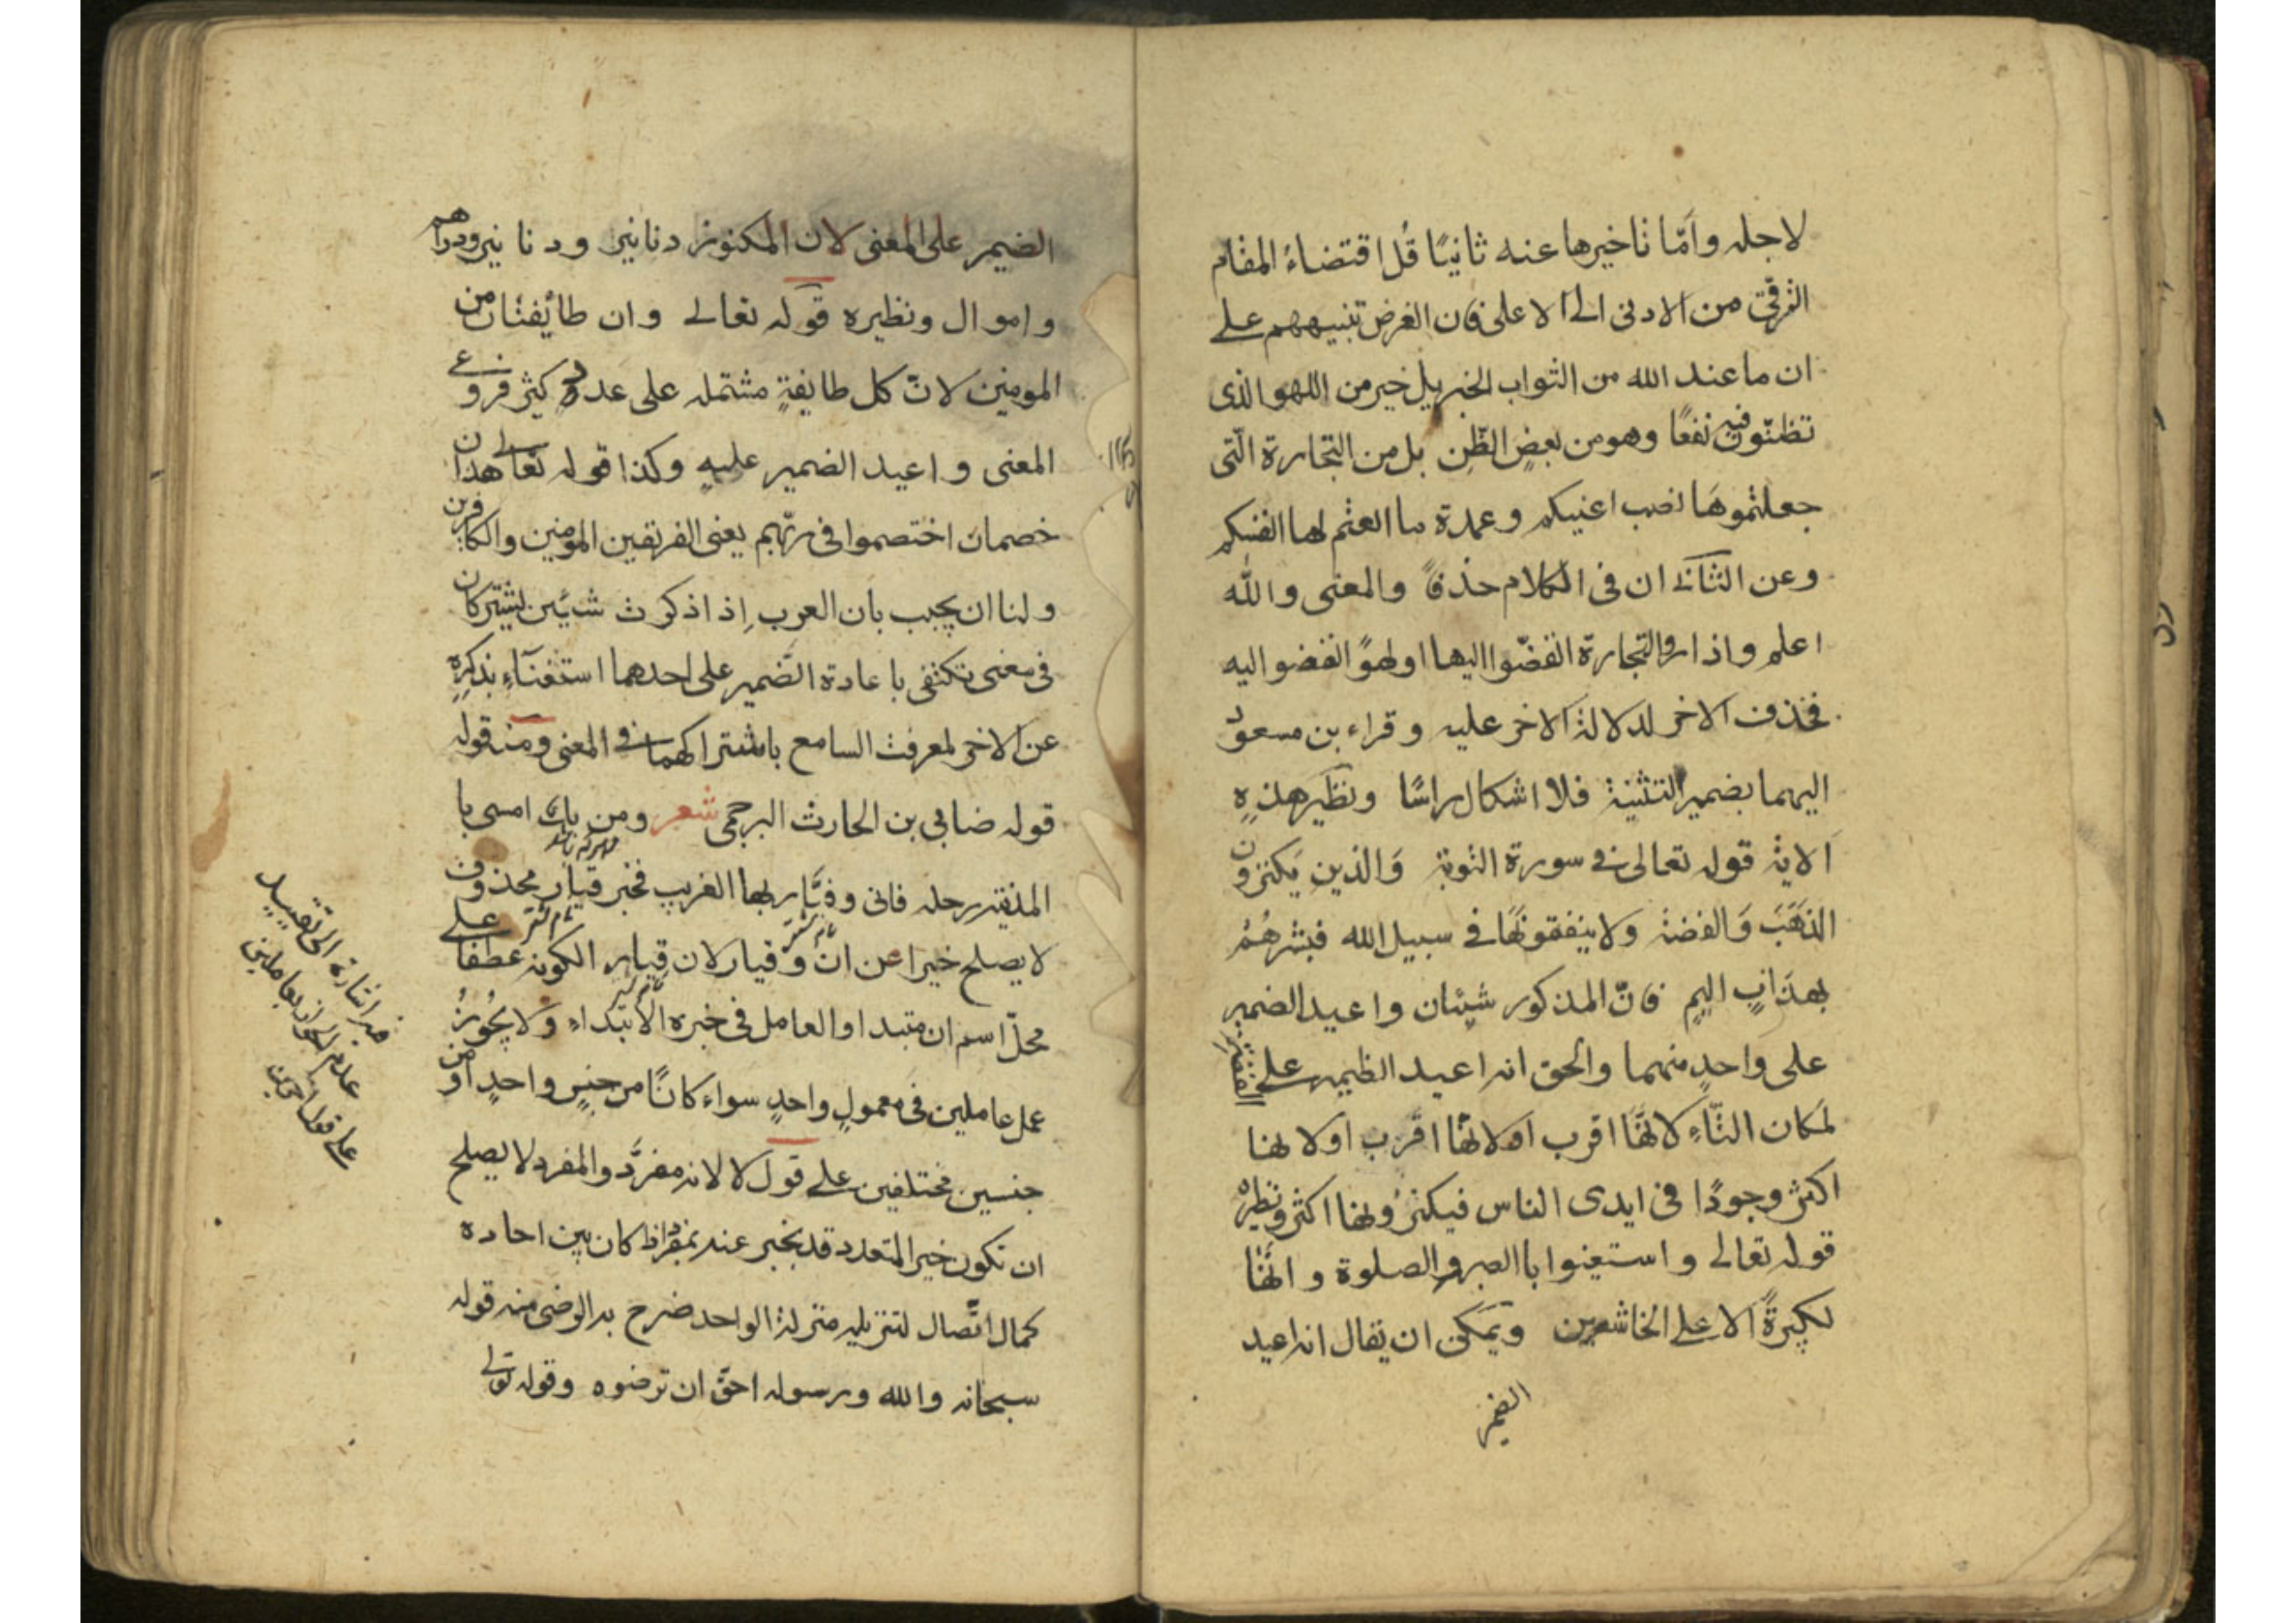 لاجله وامّا تاخيرها عنه ثانيًا قُل اقتضاءُ المقام
الترقّي من الادنى الى الاعلى فان الغرض تنبيههم على
ان ما عند الله من الثواب الخبريل خير من اللهو الذى
تظنّون فيه نفعًا وهو من بعضِ الظّن بل من التجارة الّتى
جعلتموهَا نصب اعنيكم وعمدة ما العتم لها انفسكم
وعن الثانى ان فى الكلام حذفًا والمعنى والله
اعلم واذا راو التجارة انفضّوا اليها او لهوًا انفضو اليه
فحذف الاخر لدلالة الاخر عليه وقراء بن مسعود
اليهما بضمير التثنية فلا اشكال راسًا ونظير هذهِ
الاية قوله تعالى فى سورة التوبة وَالذينِ يَكنزون
الذهَبَ وَالفضة ولا ينفقونهَا فى سبيل الله فبشرهُمُ
بعذابٍ اليمٍ فانّ المذكور شيئان واعيد الضمير
على واحدٍ منهما والحق انه اعيد الظيمير على الفضة
لمكان التّاءِ لانهَا اقرب او لانهَا اقرب اولا لها
اكثر وجودًا فى ايدى الناس فيكنز ولها اكثر ونظيرهُ
قوله تعالى واستعينوا باالصبر والصلوة وانهَا
لكبيرةً الا على الخاشعين ويمكن ان يقال انه اعيد
الضمير
الضيمر على المعنى لان المكنوز دنانير ودنانير ودراهم
واموال ونظيره قوله تعالى وان طائفتان من
المومنين لانّ كل طايفةٍ مشتمله على عددٍ كثير فروعى
المعنى واعيد الضمير عليهِ وكذا قوله تعالى هذان
خصمان اختصموا فى ربّهم يعنى الفريقين المومنين والكافرين
ولنا ان يجيب بان العرب اِذ اذكرت شيئين يشتركان
فى معنى تكتفى باعادة الضّمير على احدهما استغنآءِ بذكرِهِ
عن الاخر لمعرفت السامع باشتراكهما فى المعنى ومنه قوله
قوله ضابى بن الحارث البرجمى شعر ومن يك امسى با
المدينة رحله فانى وقيّار بها الغريب فخبر قيار محذوف
لا يصلح خيرا عن ان وقيار لان قيار الكونه عطفا على
محلّ اسم ان متبدا والعامل فى خبره الابتداءِ وَلا يجُوزُ
عمل عاملين فى معمولٍ واحدٍ سواء كانًا من جنسٍ واحدٍ او من
جنسين مختلفين على قول لا لانه مفرَّد والمفرد لا يصلح
ان تكون خير المتعدد قد يخبر عنه بمفرد اذا كان بين احاده
كمال اتّصال لتنزيله منزلة الواحد ضرح به الرضى منه قوله
سبحانه والله ورسوله احقّ ان ترضوه وقوله تولى
فيه اشارة الى تقييد
عدم الجواز بعاملين
على قول